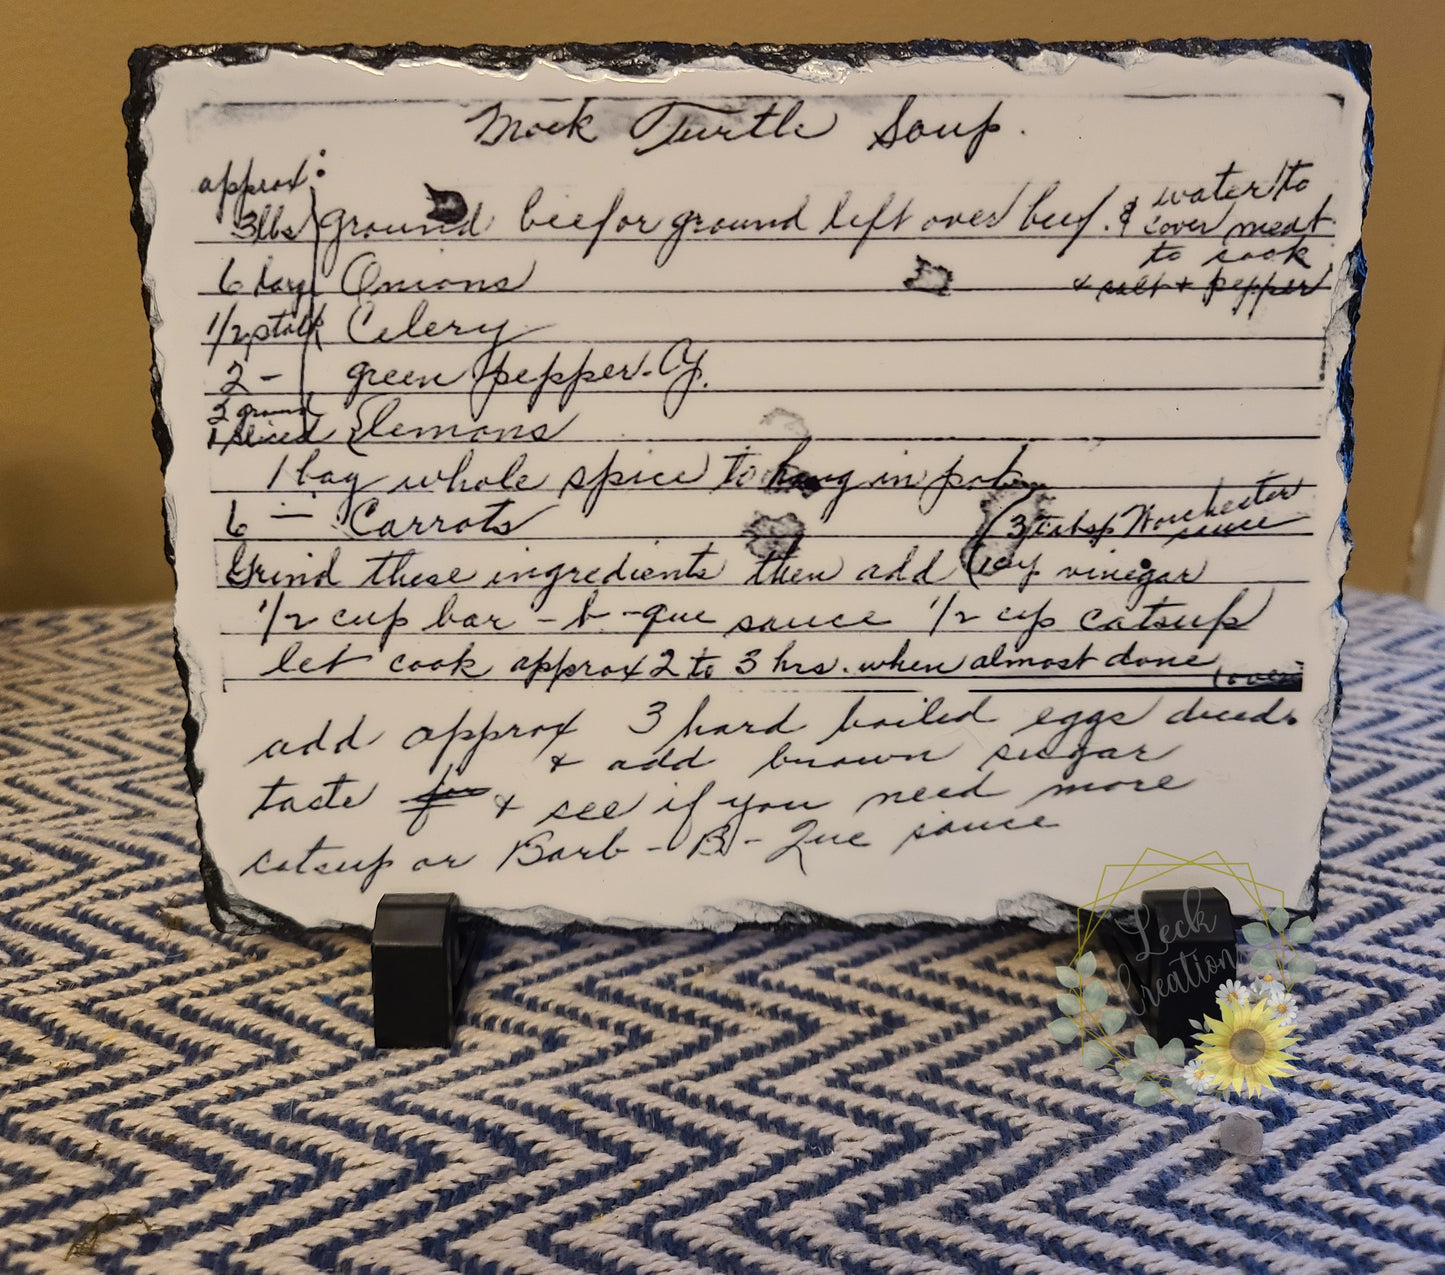 Mock Turtle Soup.
approx:
3lbs ground beef or ground left over beef. & water to
cover meat
to cook
& salt & pepper
6 large Onions
1/2 stalk Celery
2 - green pepper.
2 ground
1 sliced lemons
1 bag whole spice to hang in pot
6 - Carrots
(3 tbsp Worchester
sauce
Grind these ingredients then add ( vinegar
1/2 cup bar-b-que sauce 1/2 cup catsup
let cook approx 2 to 3 hrs. when almost done
(over
add approx 3 hard boiled eggs diced.
& add brown sugar
taste for & see if you need more
catsup or Barb-B-Que sauce
Leck
Creations